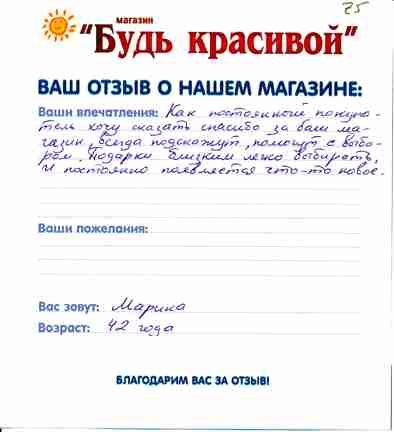 25
магазин
"Будь красивой"
ВАШ ОТЗЫВ О НАШЕМ МАГАЗИНЕ:
Ваши впечатления: Как постоянный покупа-
тель хочу сказать спасибо за ваш ма-
газин, всегда подскажут, помогут с выбо-
ром. Подарки близким легко выбирать,
и постоянно появляется что-то новое.
Ваши пожелания:
Вас зовут: Марина
Возраст: 42 года
БЛАГОДАРИМ ВАС ЗА ОТЗЫВ!